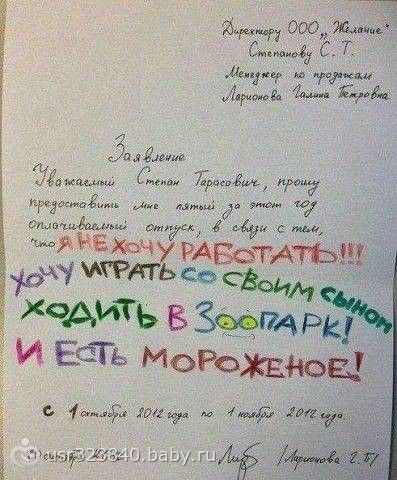 Директору ООО „Желание"
Степанову С. Т.
Менеджер по продажам
Ларионова Галина Петровна
Заявление
Уважаемый Степан Тарасович, прошу
предоставить мне пятый за этот год
оплачиваемый отпуск, в связи с тем,
что Я НЕ ХОЧУ РАБОТАТЬ!!!
ХОЧУ ИГРАТЬ СО СВОИМ СЫНОМ
ХОДИТЬ В ЗООПАРК!
И ЕСТЬ МОРОЖЕНОЕ!
с 1 октября 2012 года по 1 ноября 2012 года.
сентября /Ларионова Г. П/
.baby.ru